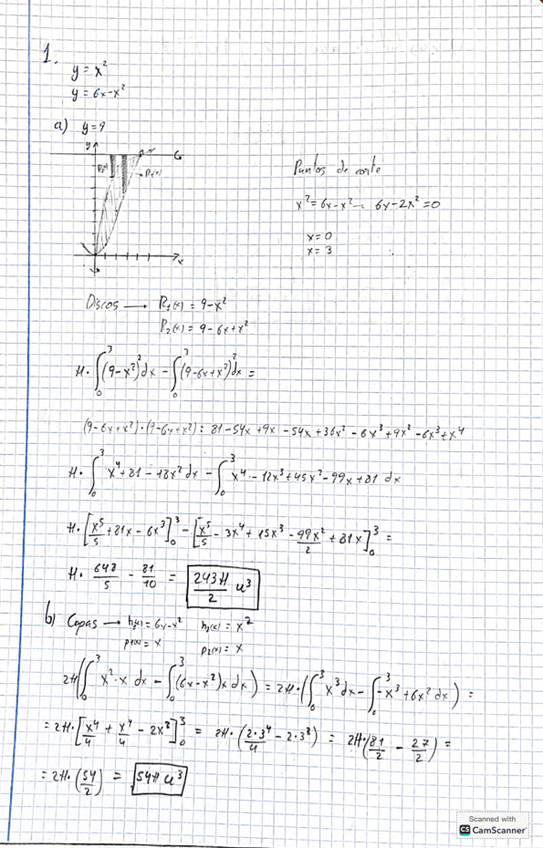 1.
y = x²
y = 6x-x²
a) y=9
y
R₂(x)
R₁(x)
x
Puntos de corte
x²=6x-x² 6x-2x²=0
x=0
x=3
Discos → R₁(x) = 9-x²
R₂(x) = 9-6x+x²
π· ∫₀³ (9-x²)² dx - ∫₀³ (9-6x+x²)² dx =
(9-6x+x²)·(9-6x+x²) = 81-54x+9x -54x+36x² -6x³+9x² -6x³+x⁴
π· ∫₀³ x⁴+81-18x² dx - ∫₀³ x⁴-12x³+45x²-99x+81 dx
π· [x⁵/5 +81x-6x³]₀³ - [x⁵/5 -3x⁴+15x³ -99x²/2 +81x]₀³ =
π· 648/5 - 81/10 = 243π/2 u³
b) Capas → h₁(x)=6x-x² h₂(x)=x²
p₁(x)=x p₂(x)=x
2π(∫₀³ x²·x dx - ∫₀³ (6x-x²)x dx) = 2π·(∫₀³ x³ dx - ∫₀³ -x³+6x² dx) =
=2π· [x⁴/4 + x⁴/4 - 2x³]₀³ = 2π·(2·3⁴/4 - 2·3³) = 2π(81/2 - 27/2) =
= 2π·(54/2) = 54π u³
Scanned with
CS CamScanner